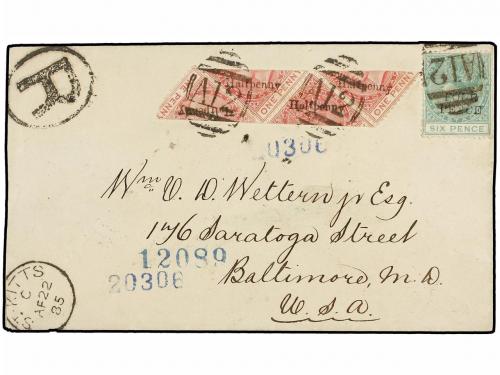 R
Halfpenny
Halfpenny
Halfpenny
ONE PENNY
A12
A12
A12
SIX PENCE
20306
Wm. V. D. Wettern jr Esq.
176 Saratoga Street
12089
20306
Baltimore, M. D.
U. S. A.
ST. KITTS
C
AP 22
85